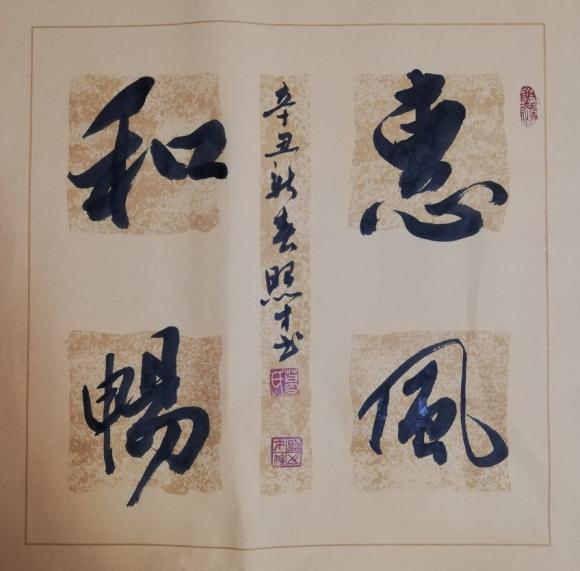 惠風
和暢
辛丑新春照才书